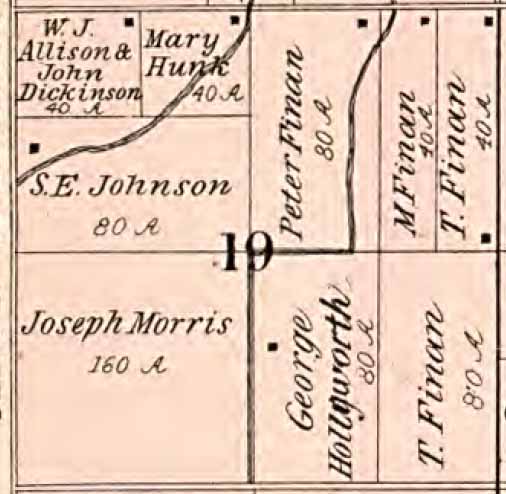 W. J.
Allison &
John
Dickinson
40 A
Mary
Hunk
40 A
Peter Finan
80 A
M Finan
40 A
T. Finan
40 A
S. E. Johnson
80 A
19
Joseph Morris
160 A
George
Hollyworth
80 A
T. Finan
80 A